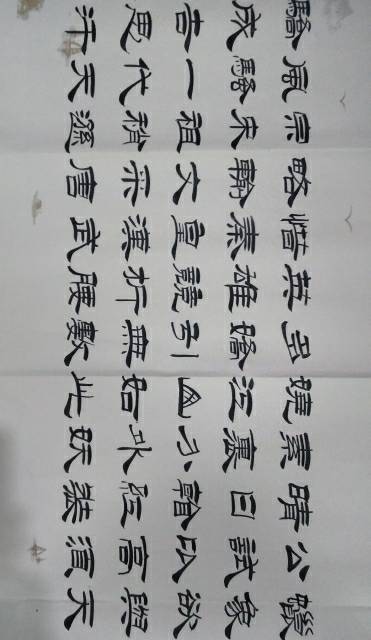 蠟象欲與天
公試比高須
晴日看紅裝
素裹分外妖
嬈江山如此
多嬌引無數
英雄競折腰
惜秦皇漢武
略輸文采唐
宗宋祖稍遜
風騷一代天
驕成吉思汗